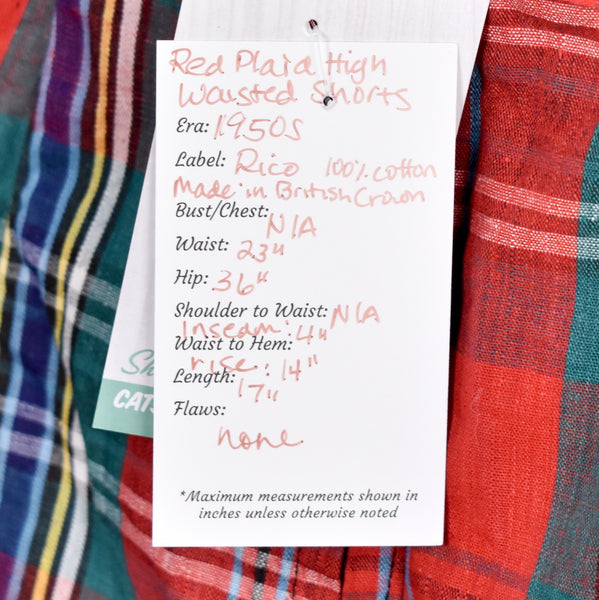 Red Plaid High
Waisted Shorts
Era: 1950s
Label: Rico 100% cotton
Made in British Crown
Bust/Chest: N/A
Waist: 23"
Hip: 36"
Shoulder to Waist: N/A
Inseam: 4"
Waist to Hem:
rise: 14"
Length: 17"
Flaws:
none
*Maximum measurements shown in
inches unless otherwise noted
Sh
CATS